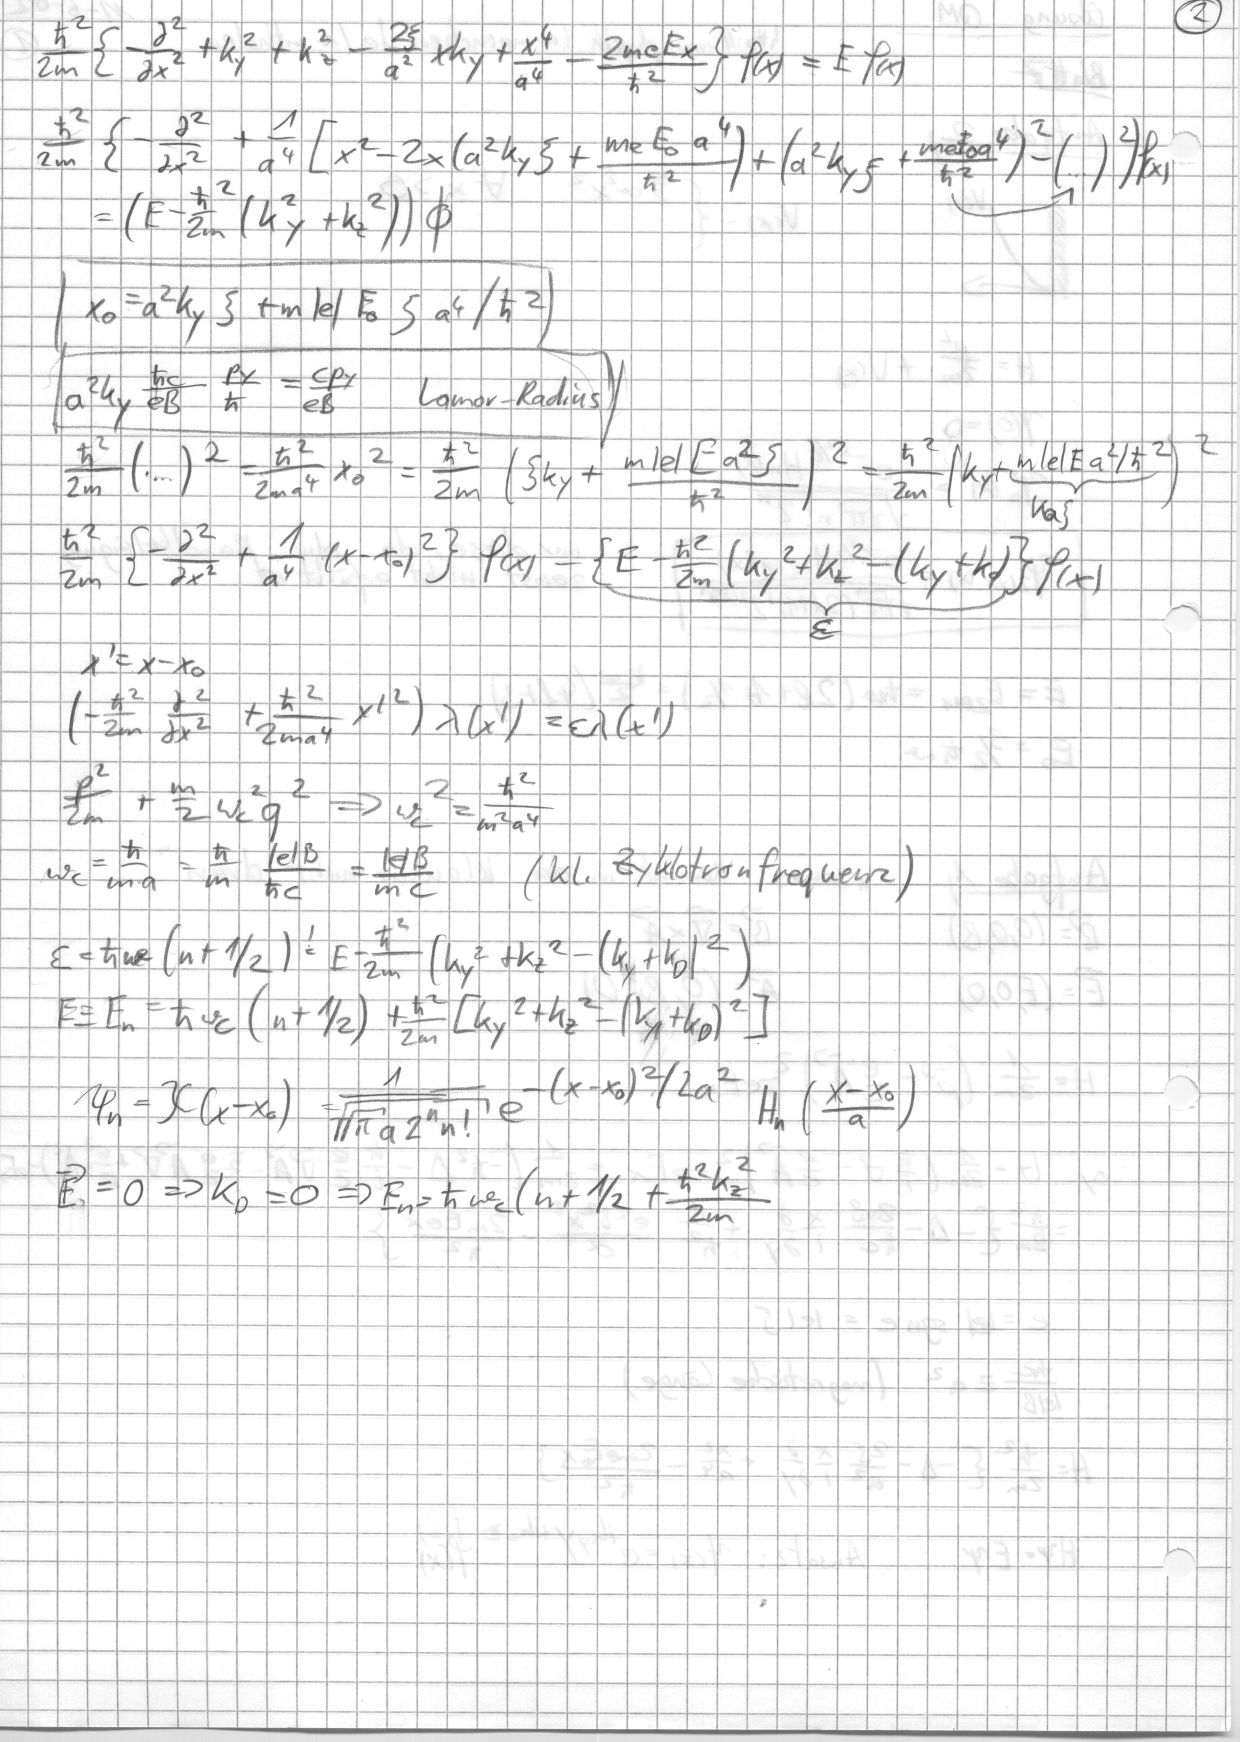 2
ħ²/2m {-∂²/∂x² + k_y² + k_z² - 2ξ/a² xk_y + x⁴/a⁴ - 2meEx/ħ²} φ(x) = E φ(x)
ħ²/2m {-∂²/∂x² + 1/a⁴ [x² - 2x(a²k_y ξ + meE₀a⁴/ħ²) + (a²k_y ξ + meE₀a⁴/ħ²)² - (...)²} φ(x)
= (E - ħ²/2m (k_y² + k_z²)) ϕ
x₀ = a²k_y ξ + m|e|E₀ ξ a⁴/ħ²
a²k_y ħc/eB p_y/ħ = cp_y/eB Lamor-Radius
ħ²/2m (...)² = ħ²/2ma⁴ x₀² = ħ²/2m (ξk_y + m|e|Ea²ξ/ħ²)² = ħ²/2m (k_y + m|e|Ea²/ħ²)²
ħ²/2m {-∂²/∂x² + 1/a⁴ (x-x₀)²} φ(x) = {E - ħ²/2m (k_y² + k_z² - (k_y + k_0)} φ(x)
ε
x' = x - x₀
(-ħ²/2m ∂²/∂x² + ħ²/2ma⁴ x'²) λ(x') = ελ(x')
p²/2m + m/2 ω_c² q² => ω_c² = ħ²/m²a⁴
ω_c = ħ/ma = ħ/m |e|B/ħc = |e|B/mc (kl. Zyklotronfrequenz)
ε = ħω_c (n + 1/2) != E - ħ²/2m (k_y² + k_z² - (k_y + k_D)²)
E ≡ E_n = ħω_c (n + 1/2) + ħ²/2m [k_y² + k_z² - (k_y + k_D)²]
ψ_n = χ(x-x₀) = 1/√(√π a 2ⁿ n!) e^{-(x-x₀)²/2a²} H_n ((x-x₀)/a)
E⃗ = 0 => k_D = 0 => E_n = ħω_c (n + 1/2 + ħ²k_z²/2m